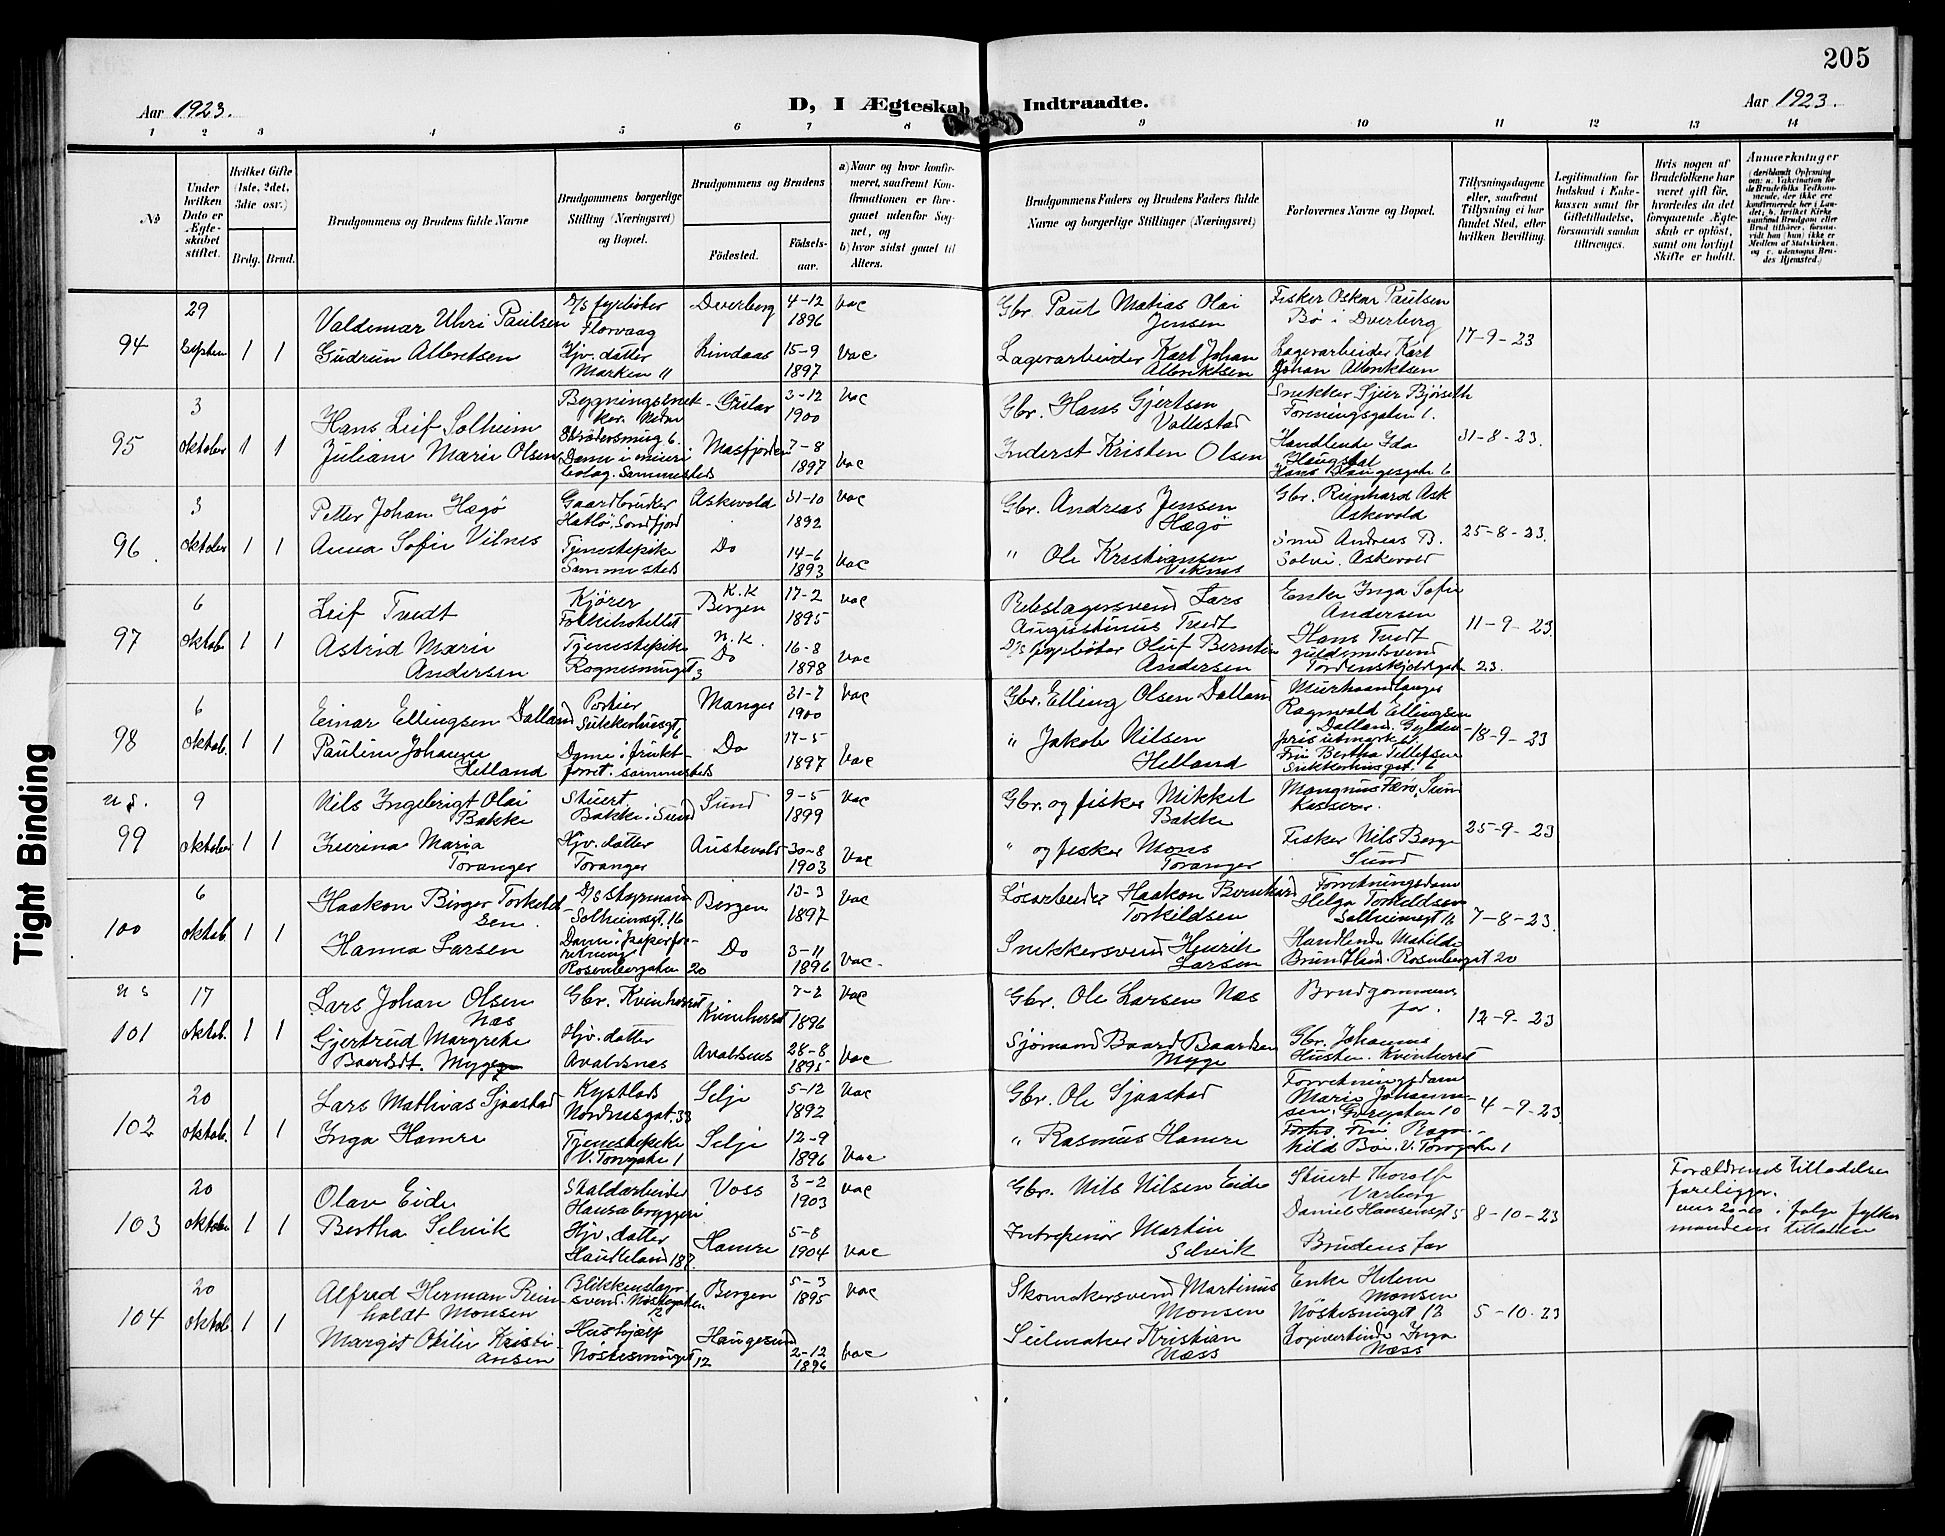 205
Aar 1923.
D, I Ægteskab Indtraadte.
Aar 1923.
1 2 3 4 5 6 7 8 9 10 11 12 13 14
No
Under hvilken Dato er Ægteskabet stiftet.
Hvilket Gifte (1ste, 2det, 3die osv.)
Brdg. Brud.
Brudgommens og Brudens fulde Navne
Brudgommens borgerlige Stilling (Næringsvei) og Bopæl.
Brudgommens og Brudens
Födested.
Födselsaar.
a) Naar og hvor konfirmeret, saafremt Konfirmationen er foregaaet udenfor Sognet, og
b) hvor sidst gaaet til Alters.
Brudgommens Faders og Brudens Faders fulde Navne og borgerlige Stillinger (Næringsvei)
Forlovernes Navne og Bopæl.
Tillysningsdagene eller, saafremt Tillysning ei har fundet Sted, efter hvilken Bevilling.
Legitimation for Indskud i Enkekassen samt for Giftetilladelse, forsaavidt saadan tiltrænges.
Hvis nogen af Brudefolkene har været gift för, hvorledes da det foregaaende Ægteskab er oplöst, samt om lovligt Skifte er holdt.
Anmærkninger
94
29 Septem 1 1
Valdemar Uhri Paulsen
D/S fyrböter Florvaag
Dverberg
4-12 1896
vac
Gbr. Paul Matias Olai Jensen
Fisker Oskar Paulsen Bö i Dverberg
17-9-23
Gudrun Albretsen
Hjv. datter Marken 11
Lindaas
15-9 1897
vac
Lagerarbeider Karl Johan Albriktsen
Lagerarbeider Karl Johan Albriktsen
95
3 Oktober 1 1
Hans Leif Solheim
Gular
3-12 1900
vac
Gbr. Hans Gjertsen Vallestad
Foreningsgaten 1.
31-8-23.
Juliane Marie Olsen
Masfjorden
7-8 1897
vac
Inderst Kristen Olsen
Handlende Ida Haugstal
Hans Haugesgate 6
96
3 Oktober 1 1
Petter Johan Hægö
Gaardbruker
Askevold
31-10 1892
vac
Gbr. Andreas Jensen Hægö
Gbr. Reinhard Ask Askevold
25-8-23.
Anna Sofie Vilnes
Tjenestepike Sammesteds
Do
14-6 1893
vac
" Ole Kristiansen
Smed Andreas B. Solvi. Askevold
97
6 Oktober 1 1
Leif Tvedt
Kjörer Folkehotellet
K.K Bergen
17-2 1895
vac
Rebslagersvend Lars Augustinus Tvedt
Enke Inga Sofie Andersen
11-9-23.
Astrid Marie Andersen
Tjenestepike Rognesmuget 3
N.K. Do
16-8 1898
vac
D/S fyrböter Oluf Berntin Andersen
Hans Tvedt guldsmedsvend Tordenskjoldsgate 23.
98
6 Oktob. 1 1
Einar Ellingsen Dalland
Portier Sukkerhusgt 6
Manger
31-7 1900
vac
Gbr. Elling Olsen Dalland
Murhaandlanger Ragnvald Ellingsen Dalland. Gyldenprisutmark
18-9-23
Pauline Johanne Helland
Dame i fruktforret. sammesteds
Do
17-5 1897
vac
" Jakob Nilsen Helland
Fru Bertha Tellefsen Sukkerhusgat. 6
n s. 99
9 Oktober 1 1
Nils Ingebrigt Olai Bakke
Stuert Bakke i Sund
Sund
9-5 1899
vac
Gbr. og fisker Mikkel Bakke
Mangnus Færö, Sun Kasserer.
25-9-23
Maria Toranger
Hjv. datter Toranger
Austevold
30-8 1903
vac
" og fisker Mons Toranger
Fisker Nils Berge Sund
100
6 Oktob. 1 1
Haakon Birger Torkildsen.
D/S styrmand Solheimsgt. 16
Bergen
13-3 1897
vac
Losarbeider Haakon Bernhard Torkildsen
Forretningsdame Helga Torkildsen Solheimsgt 16
7-8-23.
Hanna Larsen
Dame i papirforretning Rosenberggaten 20
Do
3-11 1896
vac.
Snekkersvend Henrik Larsen
Handlende Matilde Brundtland. Rosenberggt 20
n s 101
17 Oktob. 1 1
Lars Johan Olsen Næs
Gbr. Kvinherret
Kvinherret
7-2 1896
vac
Gbr. Ole Larsen Næs
Brudgommens far.
12-9-23
Gjertrud Margrethe Baardsdt. Myge
Hjv. datter Avaldsnes
Avaldsnes
28-8 1895
vac
Sjömand Baard Baardsen Myge
Gbr. Johannes Husten. Kvinherret
102
20 Oktob. 1 1
Lars Mathias Sjaastad
Kystlods Nordnesgat. 33
Selje
5-12 1892
vac
Gbr. Ole Sjaastad
Forretningsdame Marie Johannesen.
4-9-23.
Inga Hamre
Tjenestepike V. Torvgate 1
Selje
12-9 1896
vac
" Rasmus Hamre
Fru Ragnhild Böe. V. Torvgate 1
103
20 Oktober 1 1
Olav Eide
Hansabryggeri
Voss
3-2 1903
vac
Gbr. Nils Nilsen Eide
Stuert Thoralf Varberg Daniel Hansensgt 5
8-10-23
Forældrenes tilladelse foreligger.
Bertha Selvik
Hjv. datter Haukeland 187
Hamre
5-8 1904
vac
Entrepenör Martin Selvik
Brudens far
104
20 Oktob. 1 1
Alfred Herman Reinholdt Monsen
Blikkenslagersvend. Nöstegaten 12
Bergen
5-3 1895
vac
Skomakersvend Martinus Monsen
Enke Helene Monsen Nöstesmuget 12
5-10-23
Margit Otilie Kristiansen
Hushjælp Nöstesmuget 12
Haugesund
2-12 1896
vac
Seilmaker Kristian Næss
Inga Næss
Tight Binding